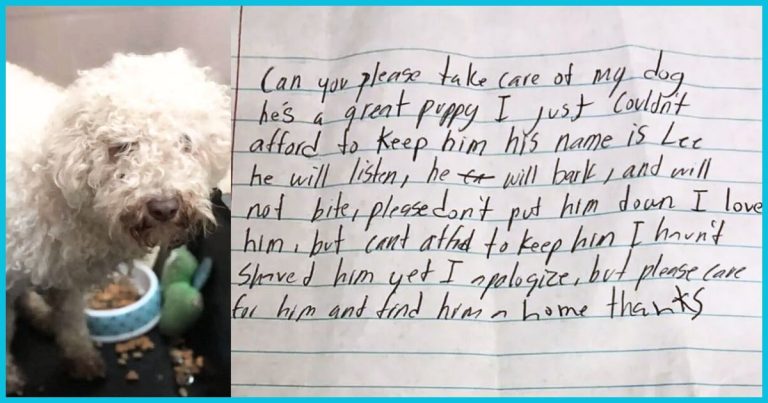 Can you please take care of my dog
he's a great puppy I just Couldn't
afford to keep him his name is Lee
he will listen, he will bark, and will
not bite, please don't put him down I love
him, but cant affrd to keep him I havn't
shaved him yet I apologize, but please care
for him and find him a home thanks